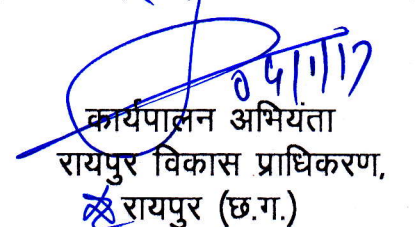 04/1/17
कार्यपालन अभियंता
रायपुर विकास प्राधिकरण,
रायपुर (छ.ग.)